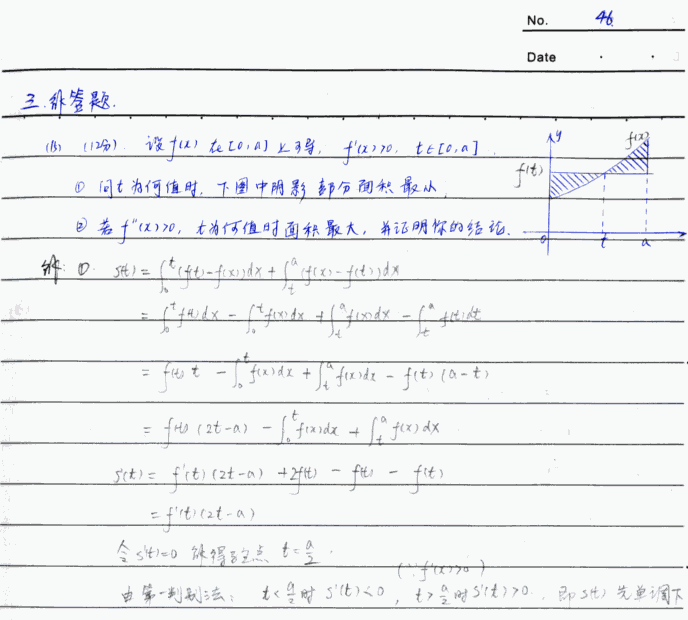 No. 46.
Date
三.解答题.
(13) (12分). 设f(x) 在[0,a]上可导, f'(x)>0, t∈[0,a].
① 问t为何值时, 下图中阴影部分面积最小,
② 若f''(x)>0, t为何值时面积最大, 并证明你的结论.
y
f(x)
f(t)
0 t a
解: ① S(t) = ∫₀ᵗ(f(t)-f(x))dx + ∫ₜᵃ(f(x)-f(t))dx
= ∫₀ᵗ f(t)dx - ∫₀ᵗ f(x)dx + ∫ₜᵃ f(x)dx - ∫ₜᵃ f(t)dt
= f(t) t - ∫₀ᵗ f(x)dx + ∫ₜᵃ f(x)dx - f(t)(a-t)
= f(t)(2t-a) - ∫₀ᵗ f(x)dx + ∫ₜᵃ f(x)dx
S'(t) = f'(t)(2t-a) + 2f(t) - f(t) - f(t)
= f'(t)(2t-a)
令S'(t)=0 解得驻点 t=a/2.
(∵f'(x)>0)
由第一判别法: t<a/2时S'(t)<0, t>a/2时S'(t)>0. 即S(t)先单调下